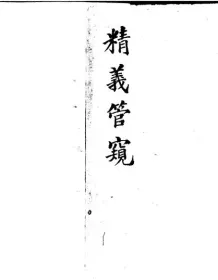 精義管窺